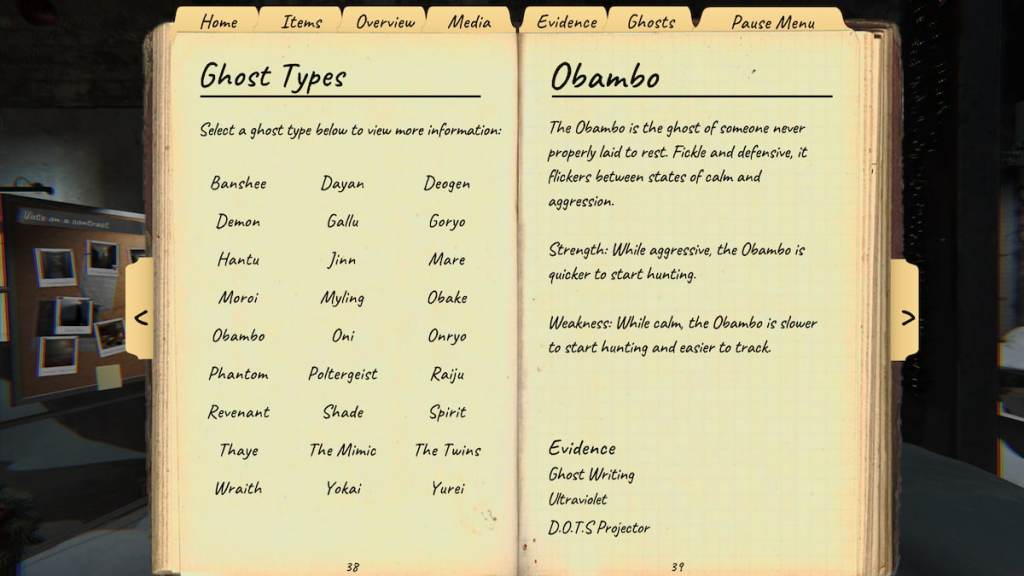 Home Items Overview Media Evidence Ghosts Pause Menu
Vote on a contract
Ghost Types
Select a ghost type below to view more information:
Banshee Dayan Deogen
Demon Gallu Goryo
Hantu Jinn Mare
Moroi Myling Obake
Obambo Oni Onryo
Phantom Poltergeist Raiju
Revenant Shade Spirit
Thaye The Mimic The Twins
Wraith Yokai Yurei
<
38
Obambo
The Obambo is the ghost of someone never
properly laid to rest. Fickle and defensive, it
flickers between states of calm and
aggression.
Strength: While aggressive, the Obambo is
quicker to start hunting.
Weakness: While calm, the Obambo is slower
to start hunting and easier to track.
Evidence
Ghost Writing
Ultraviolet
D.O.T.S Projector
>
39